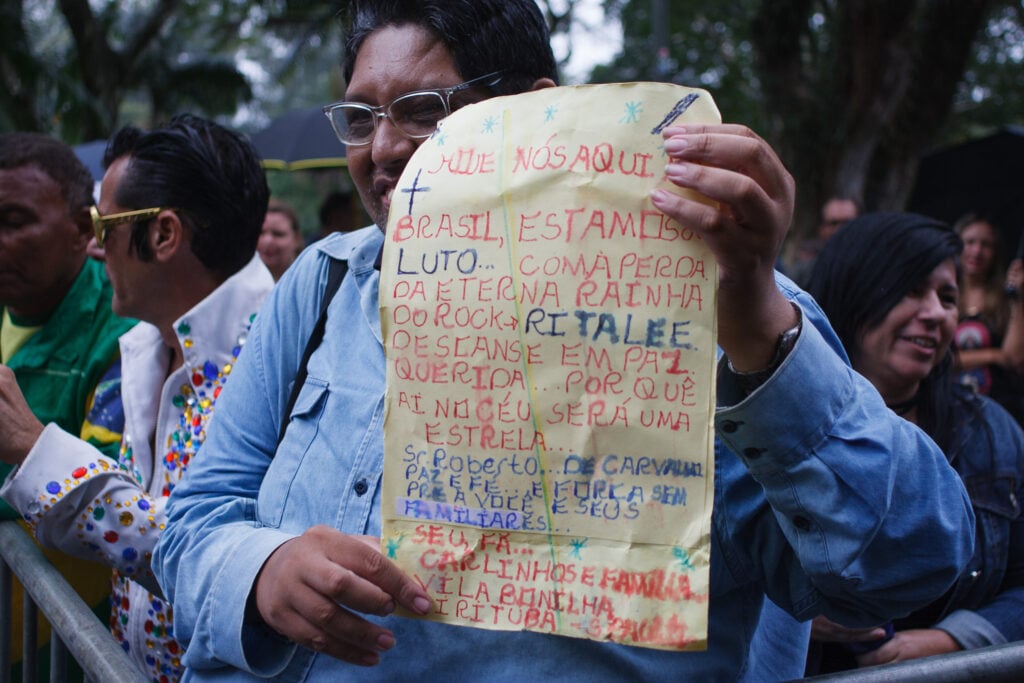 NÓS AQUI
BRASIL, ESTAMOS
LUTO... COM A PERDA
DA ETERNA RAINHA
DO ROCK→ RITA LEE.
DESCANSE EM PAZ.
QUERIDA... POR QUÊ
AI NO CÉU SERÁ UMA
ESTRELA...
Sr. Roberto... DE CARVALHO
PAZ E FÉ E FORÇA SEM
PRE A VOCÊ E SEUS
FAMILIARES...
SEU, FÃ...
CARLINHOS E FAMÍLIA
VILA BONILHA
PIRITUBA - S. PAULO